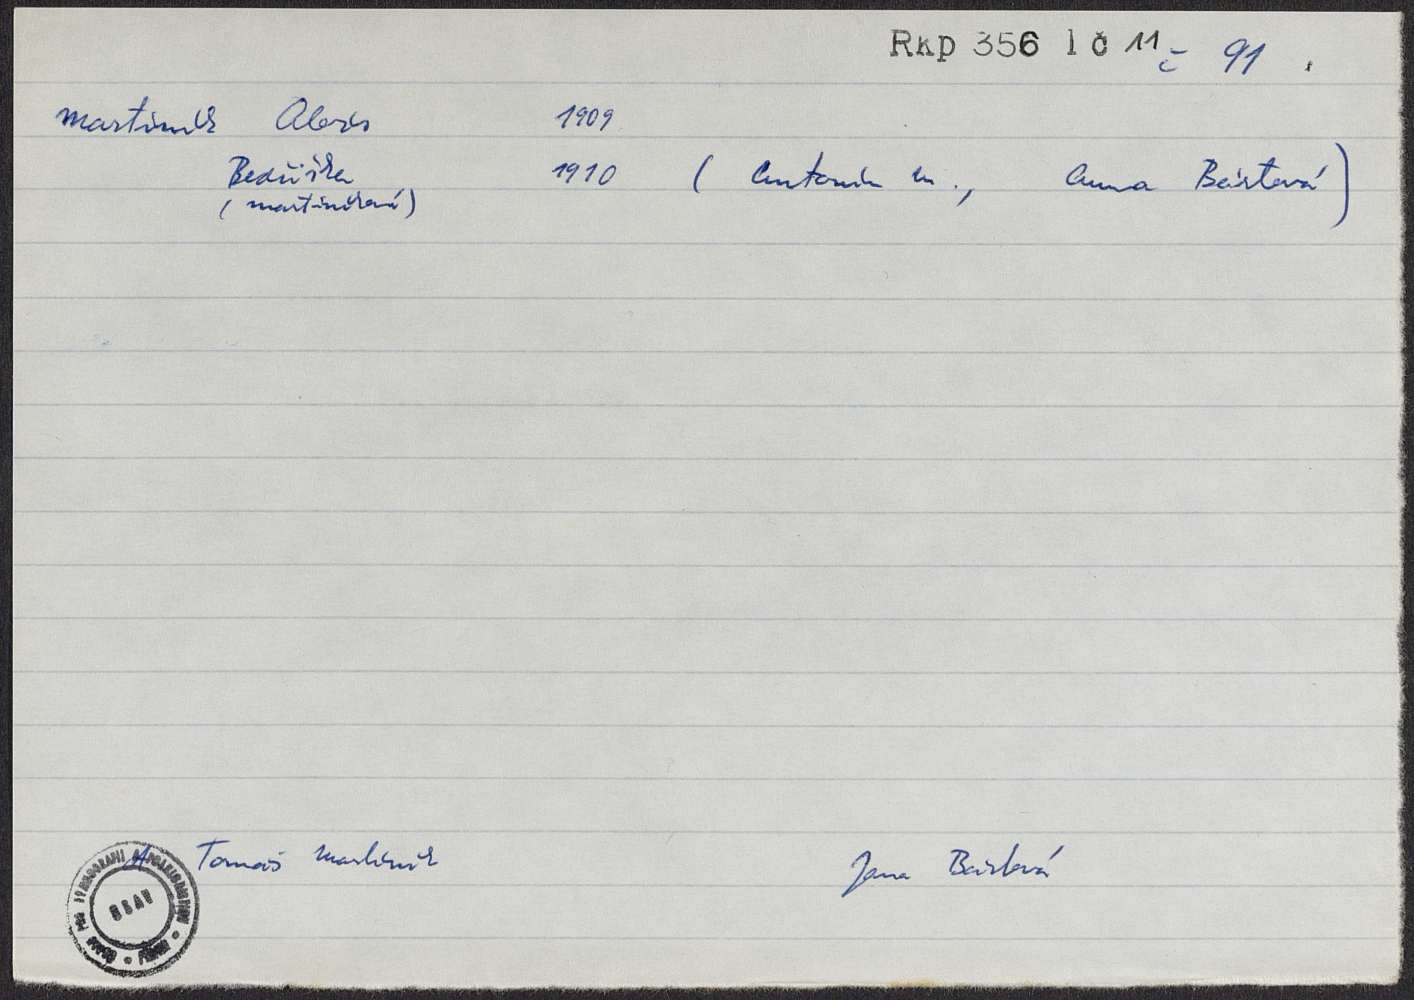 Rkp 356 1 č 11 č 91
Martiník Alois 1909
Bedřiška 1910 ( Antonín M., Anna Bártová )
( Martiníková )
Tomáš Martiník Jana Bártová